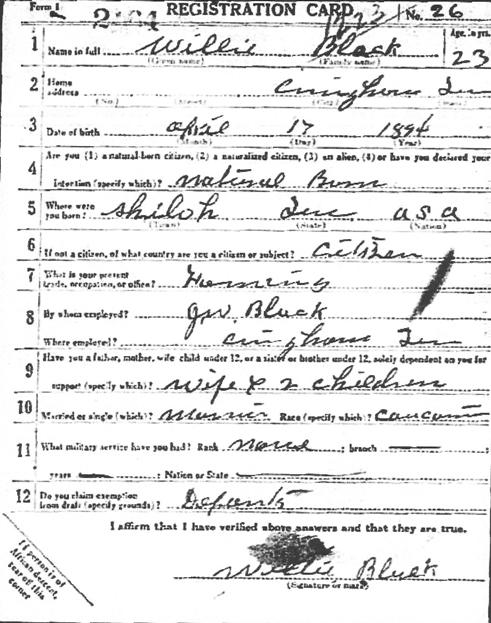 Form 1 REGISTRATION CARD No. 26
1 Name in full Willie Black Age, in yrs. 23
(Given name) (Family name)
2 Home address
(No.) (Street) (City) (State)
3 Date of birth april 17 1894
(Month) (Day) (Year)
Are you (1) a natural-born citizen, (2) a naturalized citizen, (3) an alien, (4) or have you declared your
4 intention (specify which)? natural Born
5 Where were you born? Shiloh Tenn
(Town) (State) (Nation)
6 If not a citizen, of what country are you a citizen or subject? Citizen
7 What is your present trade, occupation, or office?
8 By whom employed? J W. Black
Where employed?
9 Have you a father, mother, wife child under 12, or a sister or brother under 12, solely dependent on you for
support (specify which)? wife & 2 children
10 Married or single (which)? Race (specify which)?
11 What military service have you had? Rank none ; branch
years ; Nation or State
12 Do you claim exemption from draft (specify grounds)?
I affirm that I have verified above answers and that they are true.
Willie Black
(Signature or mark)
If person is of
African descent,
tear off this
corner